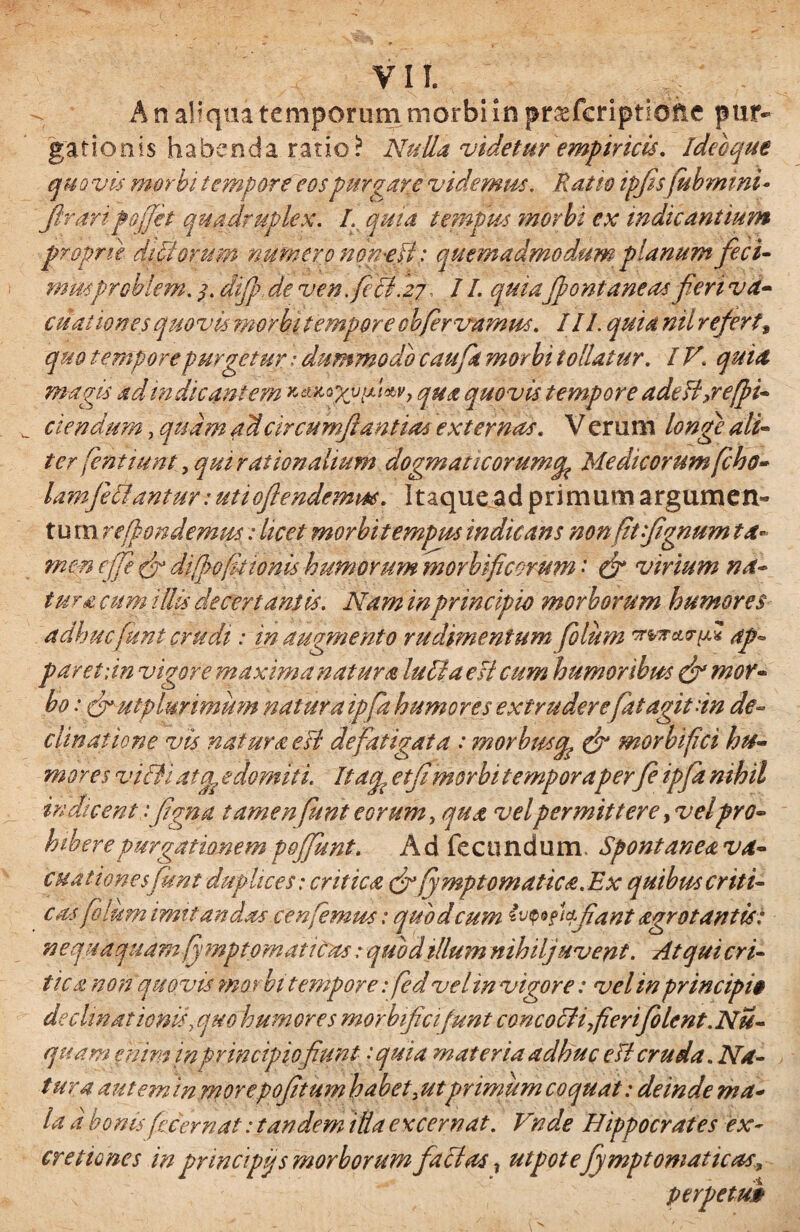 VII.
An aliqua temporum morbi in præscriptione pur-
gationis habenda ratio? Nulla videtur empiricis. Ideoque
quovis morbi tempore eos purgare videmus. Ratio ipsis submini-
strari posset quadruplex. I. quia tempus morbi ex indicantium
proprie dictorum numero non est: quemadmodum planum feci-
mus problem. 3. disp. de ven. sect. 27. II. quia spontaneas fieri va-
cuationes quovis morbi tempore observamus. III. quia nil refert,
quo tempore purgetur: dummodo causa morbi tollatur. IV. quia
magis ad indicantem κακοχυμίαν, quæ quovis tempore adest, respi-
ciendum, quàm ad circumstantias externas. Verum longè ali-
ter sentiunt, qui rationalium dogmaticorumq; Medicorum scho-
lam sectantur: uti ostendemus. Itaque ad primum argumen-
tum respondemus: licet morbi tempus indicans non sit: signum ta-
men esse & dispositionis humorum morbificorum: & virium na-
turæ cum illis decertantis. Nam in principio morborum humores
adhuc sunt crudi: in augmento rudimentum solum πεπασμοῦ ap-
paret: in vigore maxima naturæ lucta est cum humoribus & mor-
bo: & ut plurimùm natura ipsa humores extrudere satagit: in de-
clinatione vis naturæ est defatigata: morbusq; & morbifici hu-
mores victi atq; edomiti. Itaq; etsi morbi tempora per se ipsa nihil
indicent: signa tamen sunt eorum, quæ vel permittere, vel pro-
hibere purgationem possunt. Ad secundum. Spontaneæ va-
cuationes sunt duplices: criticæ & symptomaticæ. Ex quibus criti-
cas solum imitandas censemus: quòd cum εὐφορίᾳ fiant ægrotantis:
nequaquam symptomaticas: quòd illum nihil juvent. Atqui cri-
ticæ non quovis morbi tempore: sed vel in vigore: vel in principio
declinationis, quo humores morbifici sunt concocti, fieri solent. Nū-
quam enim in principio fiunt: quia materia adhuc est cruda. Na-
tura autem in more positum habet, ut primùm coquat: deinde ma-
la à bonis secernat: tandem illa excernat. Vnde Hippocrates ex-
cretiones in principijs morborum factas, utpote symptomaticas,
perpetuò